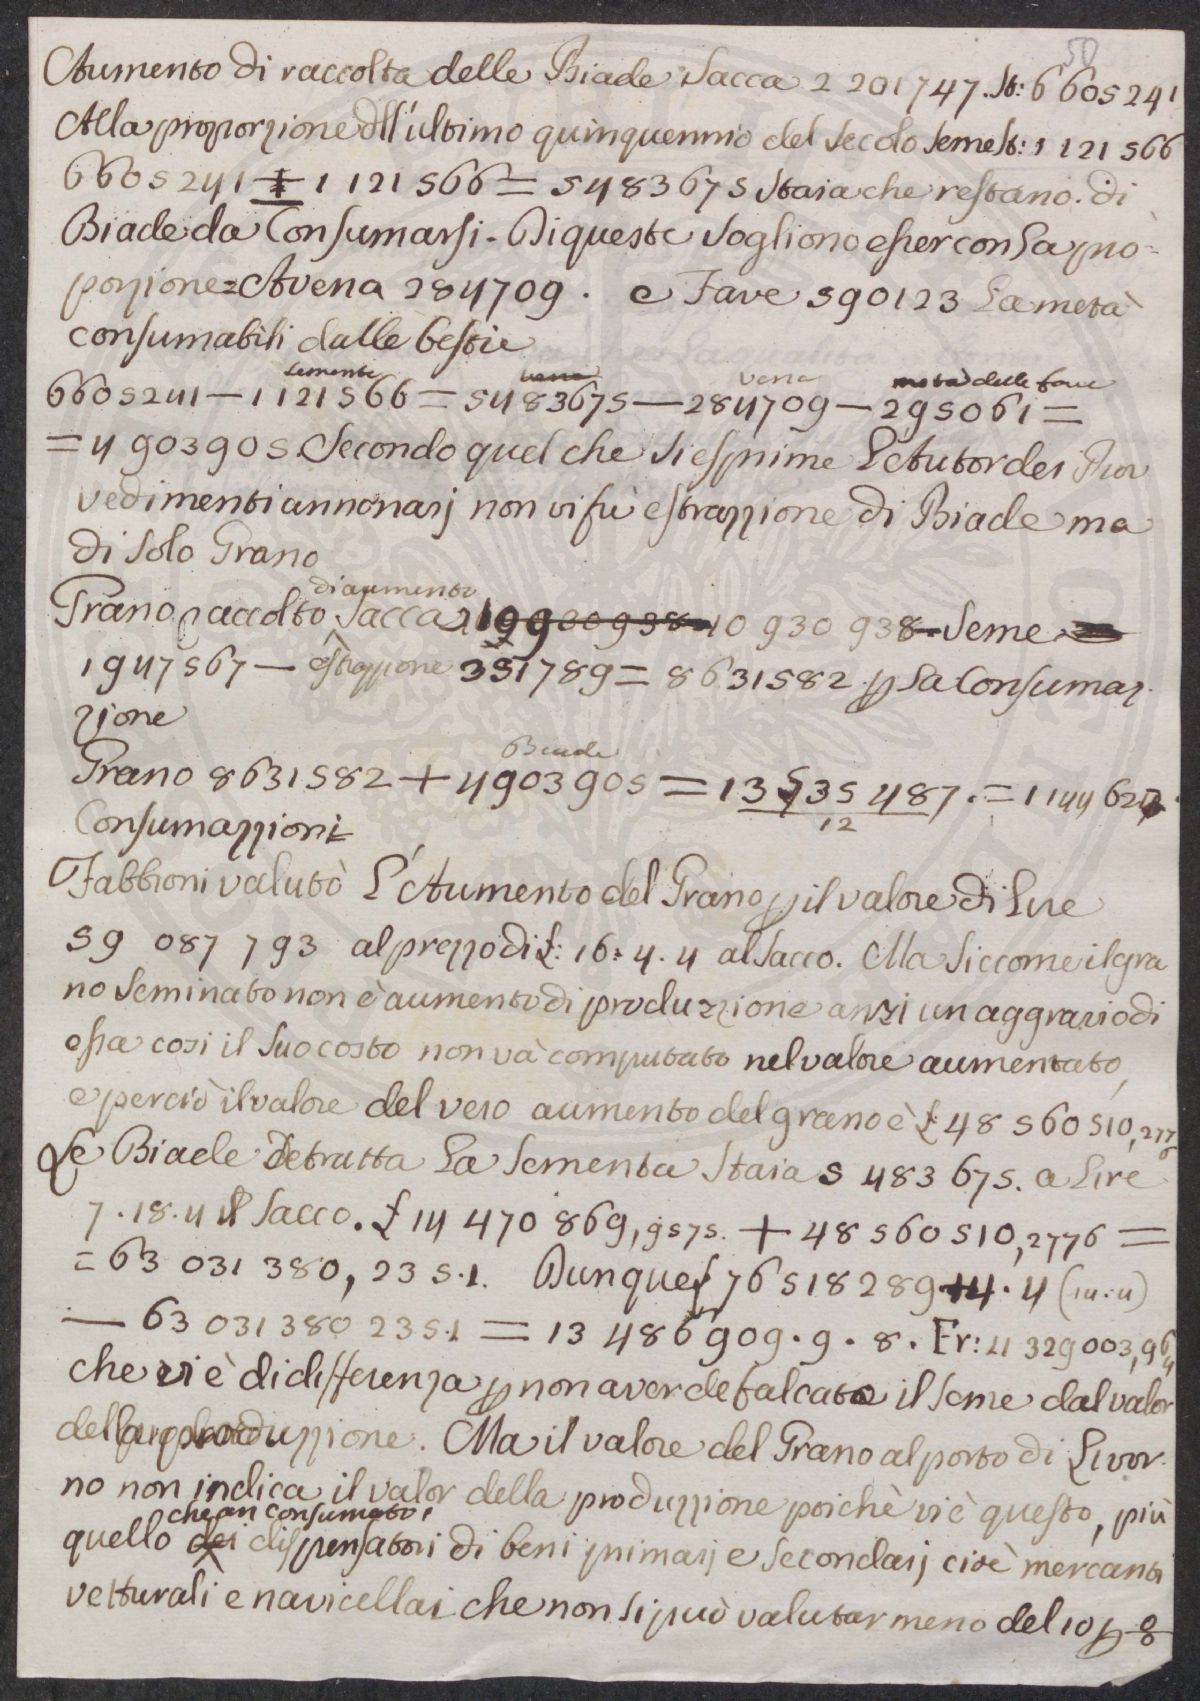 50
Aumento di raccolta delle Biade Sacca 2 201747. St: 6605241
Alla proporzione dll'ultimo quinquennio del secolo seme St: 1 121 566
6605241 ± 1 121 566 = 5483675 Staia che restano di
Biade da Consumarsi. Di queste vogliono esser con la pro-
porzione = Avena 284709. e Fave 590123 la metà
consumabili dalle bestie
semente vena metà delle fave
6605241 — 1 121566 = 5483675 — 284709 — 295061 =
= 4 903905 Secondo quel che si esprime l'Autor dei Prov
vedimenti annonarj non vi fù estrazzione di Biade ma
di solo Grano
di aumento
Grano raccolto Sacca 10 930 938 — Seme
1947567 — estrazzione 351789 = 8631582 p la Consumaz.
zione
Biade
Grano 8631582 + 4903905 = 13535 487. = 1144 627
12
Consumazzioni
Fabbroni valutò l'Aumento del Grano p il valore di Lire
59 087 793 al prezzo di £: 16: 4. 4 al Sacco. Ma siccome il gra
no seminato non è aumento di produzzione anzi un aggravio di
essa così il suo costo non và computato nel valore aumentato,
e perciò il valore del vero aumento del grano è £ 48 560 510,277
Le Biade detratta la sementa Staia 5 483 675. a Lire
7. 18. 4 il Sacco. £ 14 470 869,9575. + 48 560 510,2776 =
= 63 031 380, 235.1. Dunque £ 76 518 289.14. 4 (14.4)
— 63 031 380 235.1 = 13 486 909. 9. 8. Fr: 11 329 003,96
che vi è di differenza p non aver defalcato il seme dal valor
della produzzione. Ma il valore del Grano al porto di Livor-
no non indica il valor della produzzione poichè vi è questo, più
che an consumato,
quello dei dispensatori di beni primarj e secondarj cioè mercanti
vetturali e navicellai che non si può valutar meno del 10 p